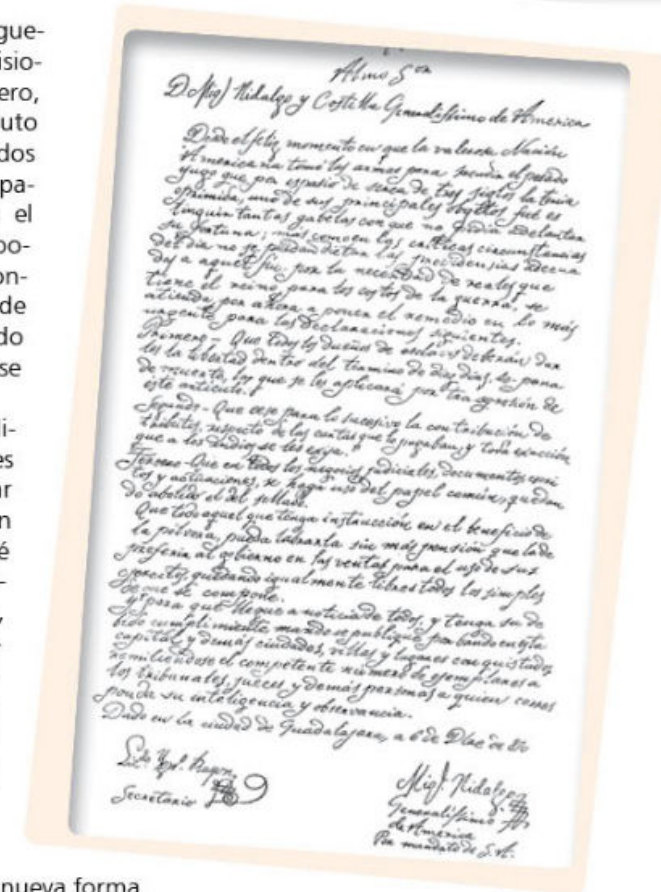 gue-
isio-
ero,
uto
dos
pa-
el
po-
on-
de
do
se
di-
es
ar
n
é
-
y
Almo Sor.
D. Migl. Hidalgo y Costilla Generalissimo de America
Desde el feliz momento en que la valerosa Nación
Americana tomó las armas para sacudir el pesado
yugo que por espacio de serca de tres siglos la tenia
oprimida, uno de sus principales objetos fué es
tinguir tantas gabelas con que no podia adelantar
su fortuna; mas como en las criticas circunstancias
del dia no se puedan dictar las providensias adecua
das a aquel fin, por la necesidad de reales que
tiene el reino para los costos de la guerra, se
atienda por ahora a poner el remedio en lo más
urgente para las declaraciones siguientes.
Primero- Que todos los dueños de esclavos deberán dar
les la libertad dentro del termino de dies dias, so pena
de muerte, la que se les aplicará por tra agresión de
este articulo.
Segundo- Que cese para lo sucesivo la contribución de
tributos, respecto de las castas que lo pagaban, y toda exacción
que a los Yndios se les exija.
Tersero- Que en todos los negocios judiciales, documentos, escri
tos y actuaciones, se haga uso del papel común, quedan
do abolido el del sellado.
Que todo aquel que tenga instrucción en el beneficio de
la pólvora, pueda labrarla sin más pensión que la de
preferir al gobierno en las ventas para el uso de sus
ejercitos, quedando igualmente libres todos los simples
de que se compone.
Y para que llegue a noticia de todos, y tenga su de
bido cumplimiento, mando se publique por bando en esta
capital y demás ciudades, villas y lugares conquistados,
remitiendose el competente número de ejemplares a
los tribunales, jueces y demás personas a quien corres
ponda su inteligencia y observancia.
Dado en la ciudad de Guadalajara, a 6 de Dbre de
Secretario
Migl. Hidalgo
Generalissimo
de America
Por mandato de S.A.
nueva forma